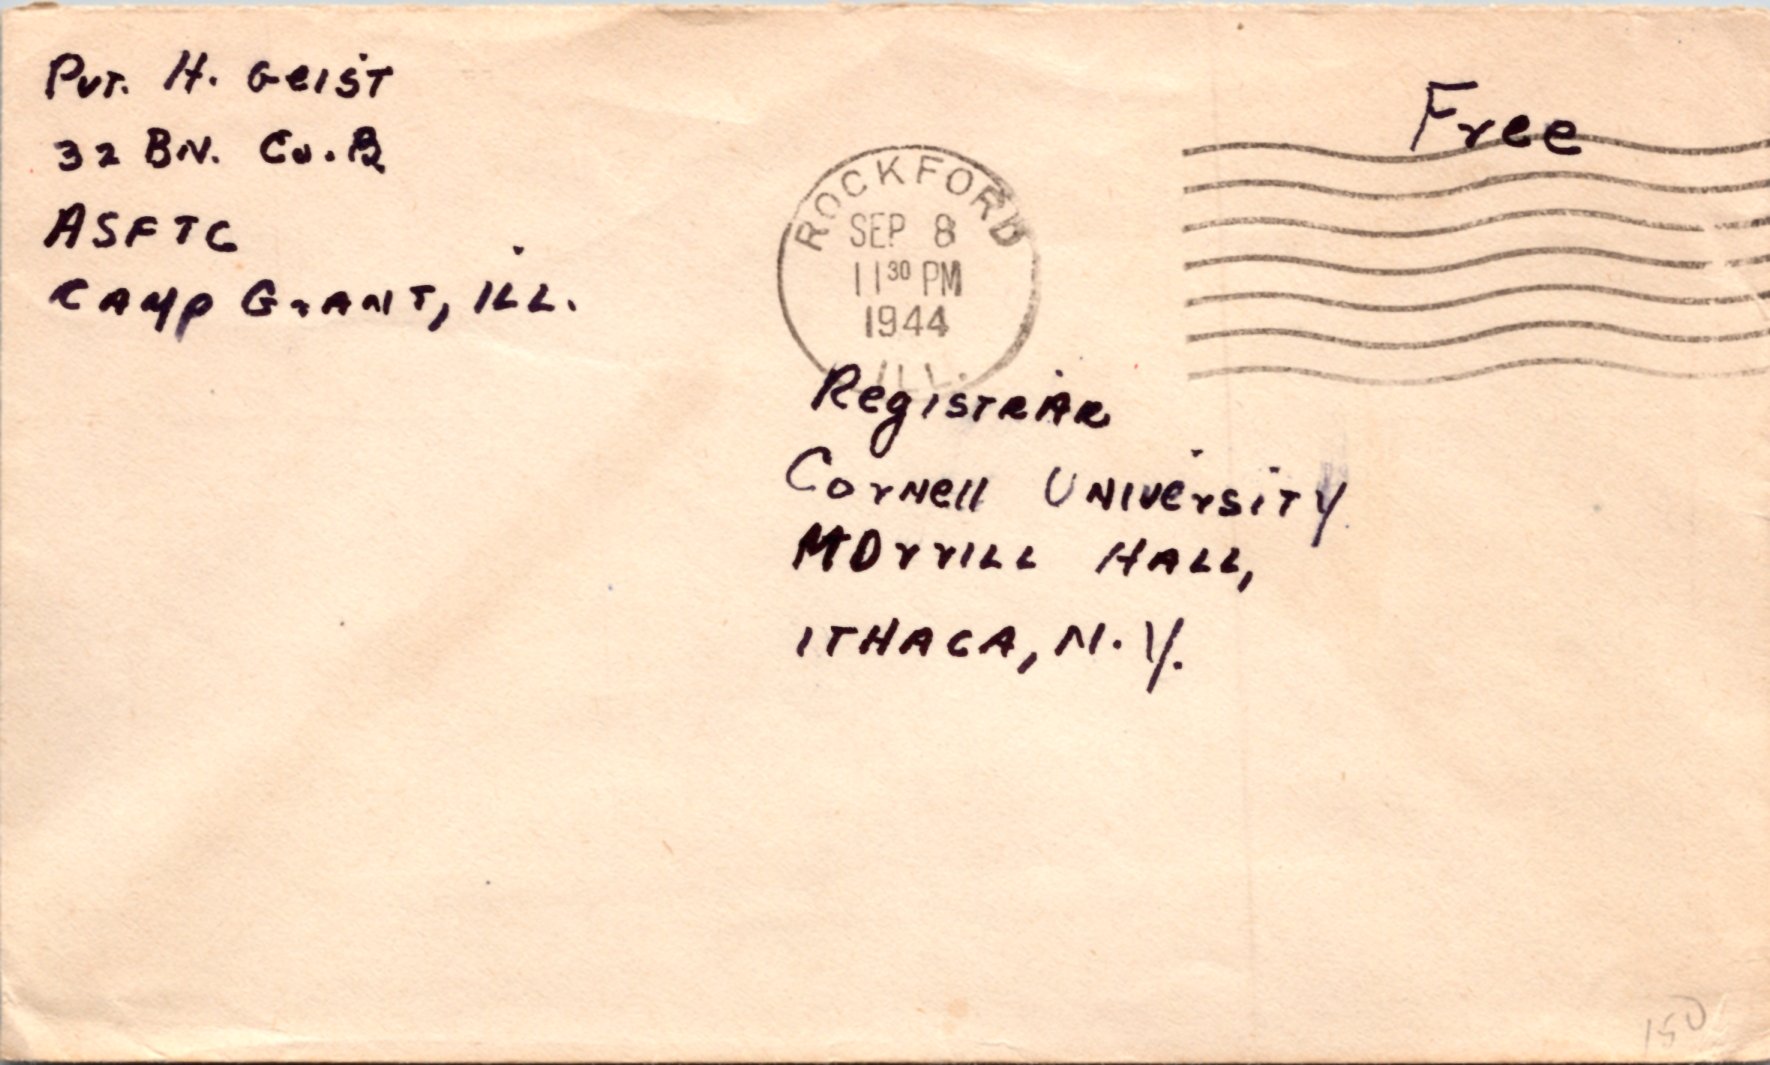 Pvt. H. Geist
32 Bn. Co. B
ASFTC
Camp Grant, Ill.
Free
ROCKFORD
SEP 8
11 30 PM
1944
ILL.
Registrar
Cornell University
Morrill Hall,
Ithaca, N.Y.
150